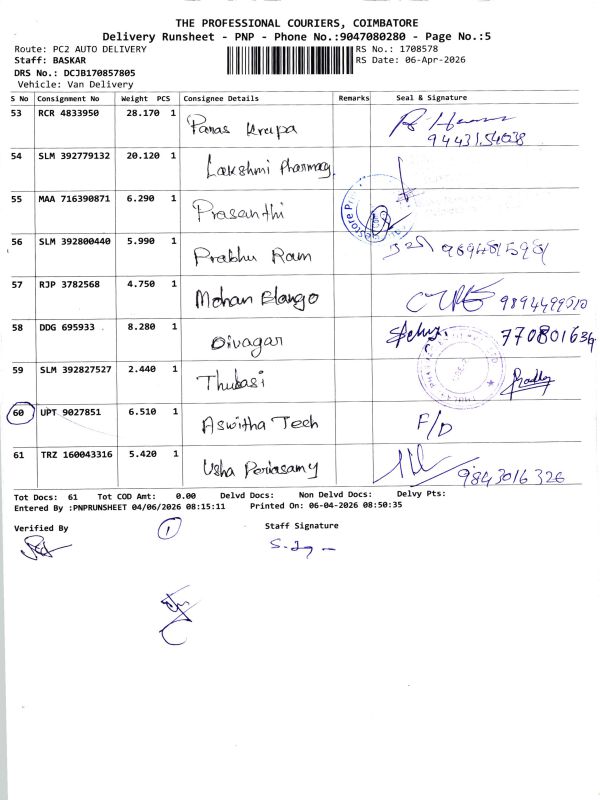 THE PROFESSIONAL COURIERS, COIMBATORE
Delivery Runsheet - PNP - Phone No.:9047080280 - Page No.:5
Route: PC2 AUTO DELIVERY RS No.: 1708578
Staff: BASKAR RS Date: 06-Apr-2026
DRS No.: DCJB170857805
Vehicle: Van Delivery
S No Consignment No Weight PCS Consignee Details Remarks Seal & Signature
53 RCR 4833950 28.170 1 Panas Krupa
54 SLM 392779132 20.120 1 Lakshmi Pharmacy
55 MAA 716390871 6.290 1 Prasanthi
56 SLM 392800440 5.990 1 Prabhu Ram
57 RJP 3782568 4.750 1 Mohan Elango 9894499010
58 DDG 695933 8.280 1 Divagar 770801634
59 SLM 392827527 2.440 1 Thulasi
60 UPT 9027851 6.510 1 Aswitha Tech F/D
61 TRZ 160043316 5.420 1 Usha Periasamy 9843016326
Tot Docs: 61 Tot COD Amt: 0.00 Delvd Docs: Non Delvd Docs: Delvy Pts:
Entered By :PNPRUNSHEET 04/06/2026 08:15:11 Printed On: 06-04-2026 08:50:35
Verified By 1 Staff Signature